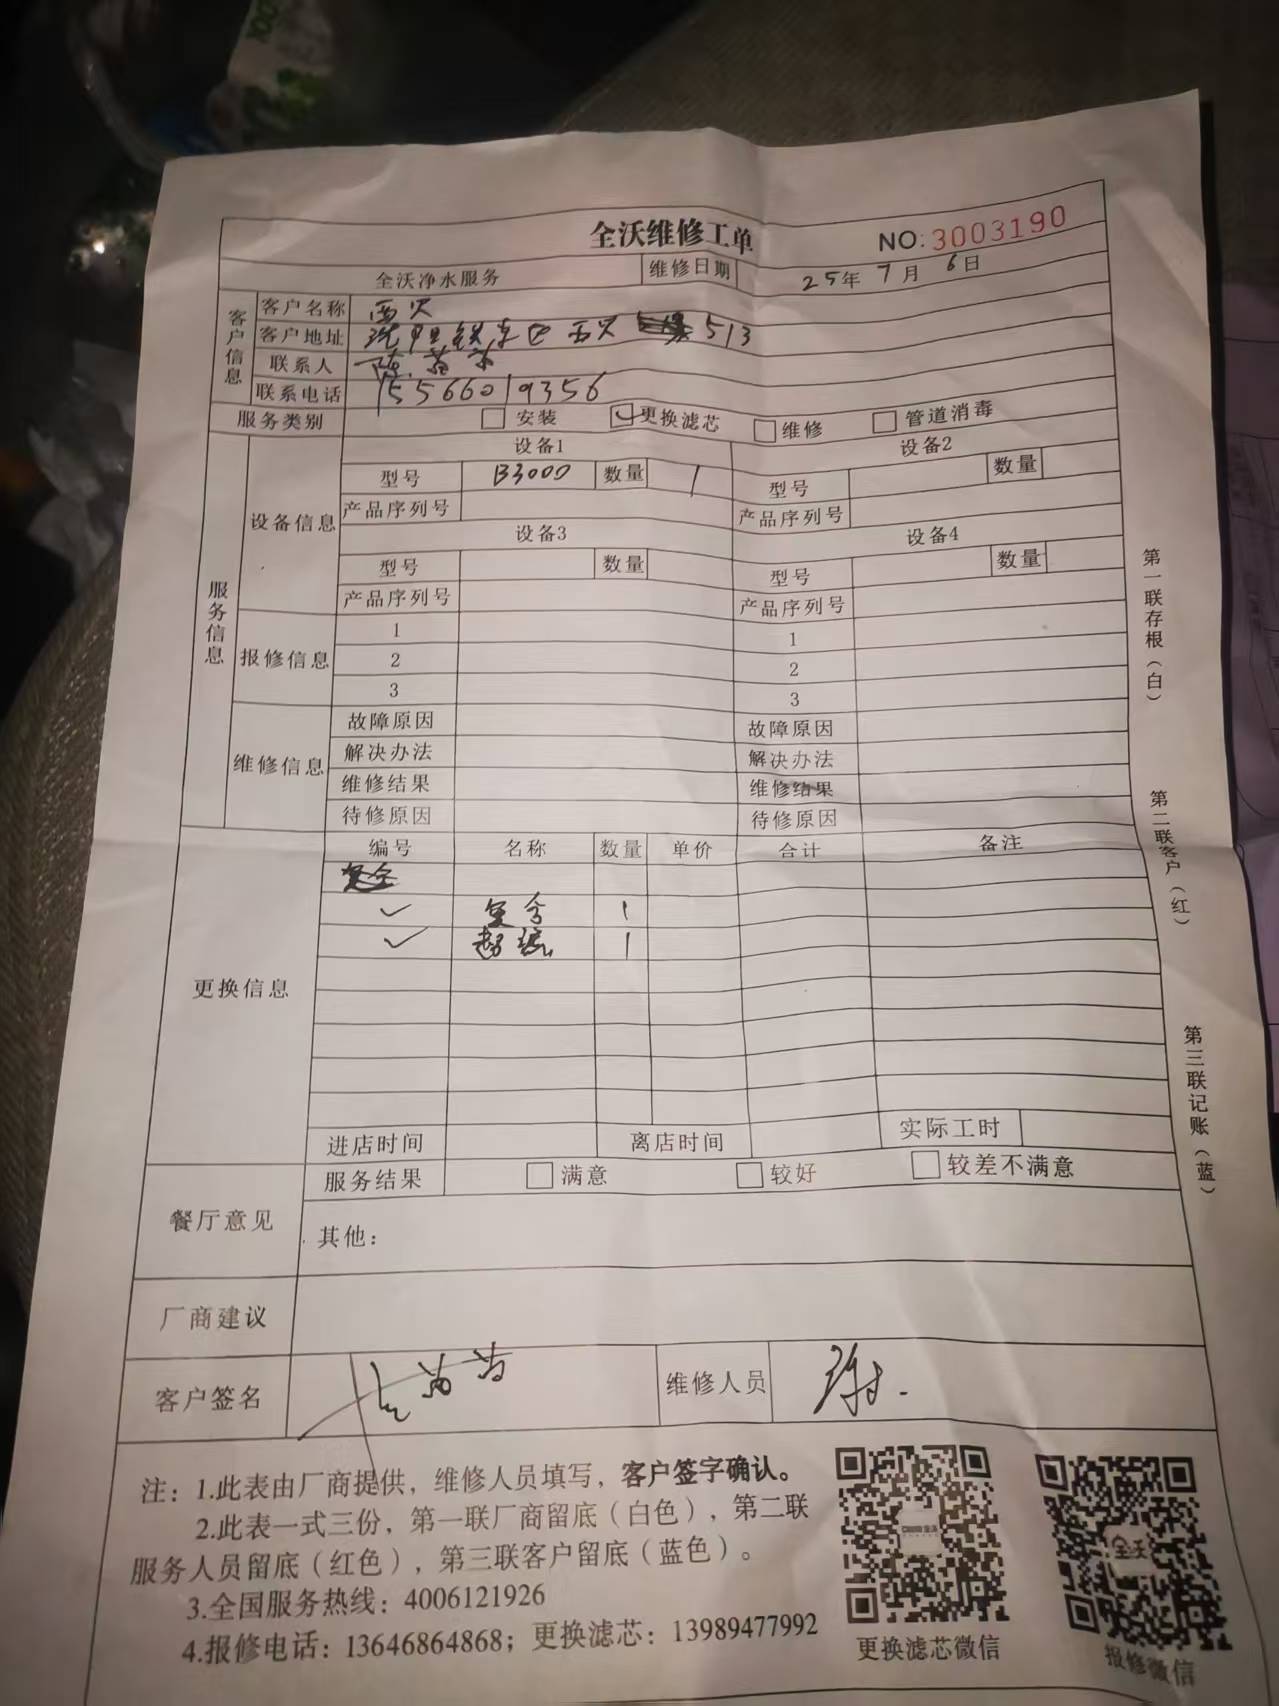 全沃维修工单
NO:3003190
全沃净水服务 维修日期 25年 7月 6日
客户信息
客户名称 西贝
客户地址 沈阳铁东区西贝 513
联系人
联系电话 15566019356
服务类别 安装 更换滤芯 维修 管道消毒
服务信息
设备信息
设备1 设备2
型号 B3000 数量 1 型号 数量
产品序列号 产品序列号
设备3 设备4
型号 数量 型号 数量
产品序列号 产品序列号
报修信息
1 1
2 2
3 3
维修信息
故障原因 故障原因
解决办法 解决办法
维修结果 维修结果
待修原因 待修原因
更换信息
编号 名称 数量 单价 合计 备注
✓ 复合 1
✓ 超滤 1
进店时间 离店时间 实际工时
餐厅意见
服务结果 满意 较好 较差不满意
其他：
厂商建议
客户签名 维修人员
注：1.此表由厂商提供，维修人员填写，客户签字确认。
2.此表一式三份，第一联厂商留底（白色），第二联
服务人员留底（红色），第三联客户留底（蓝色）。
3.全国服务热线：4006121926
4.报修电话：13646864868；更换滤芯：13989477992
更换滤芯微信
报修微信
第一联存根（白）
第二联客户（红）
第三联记账（蓝）